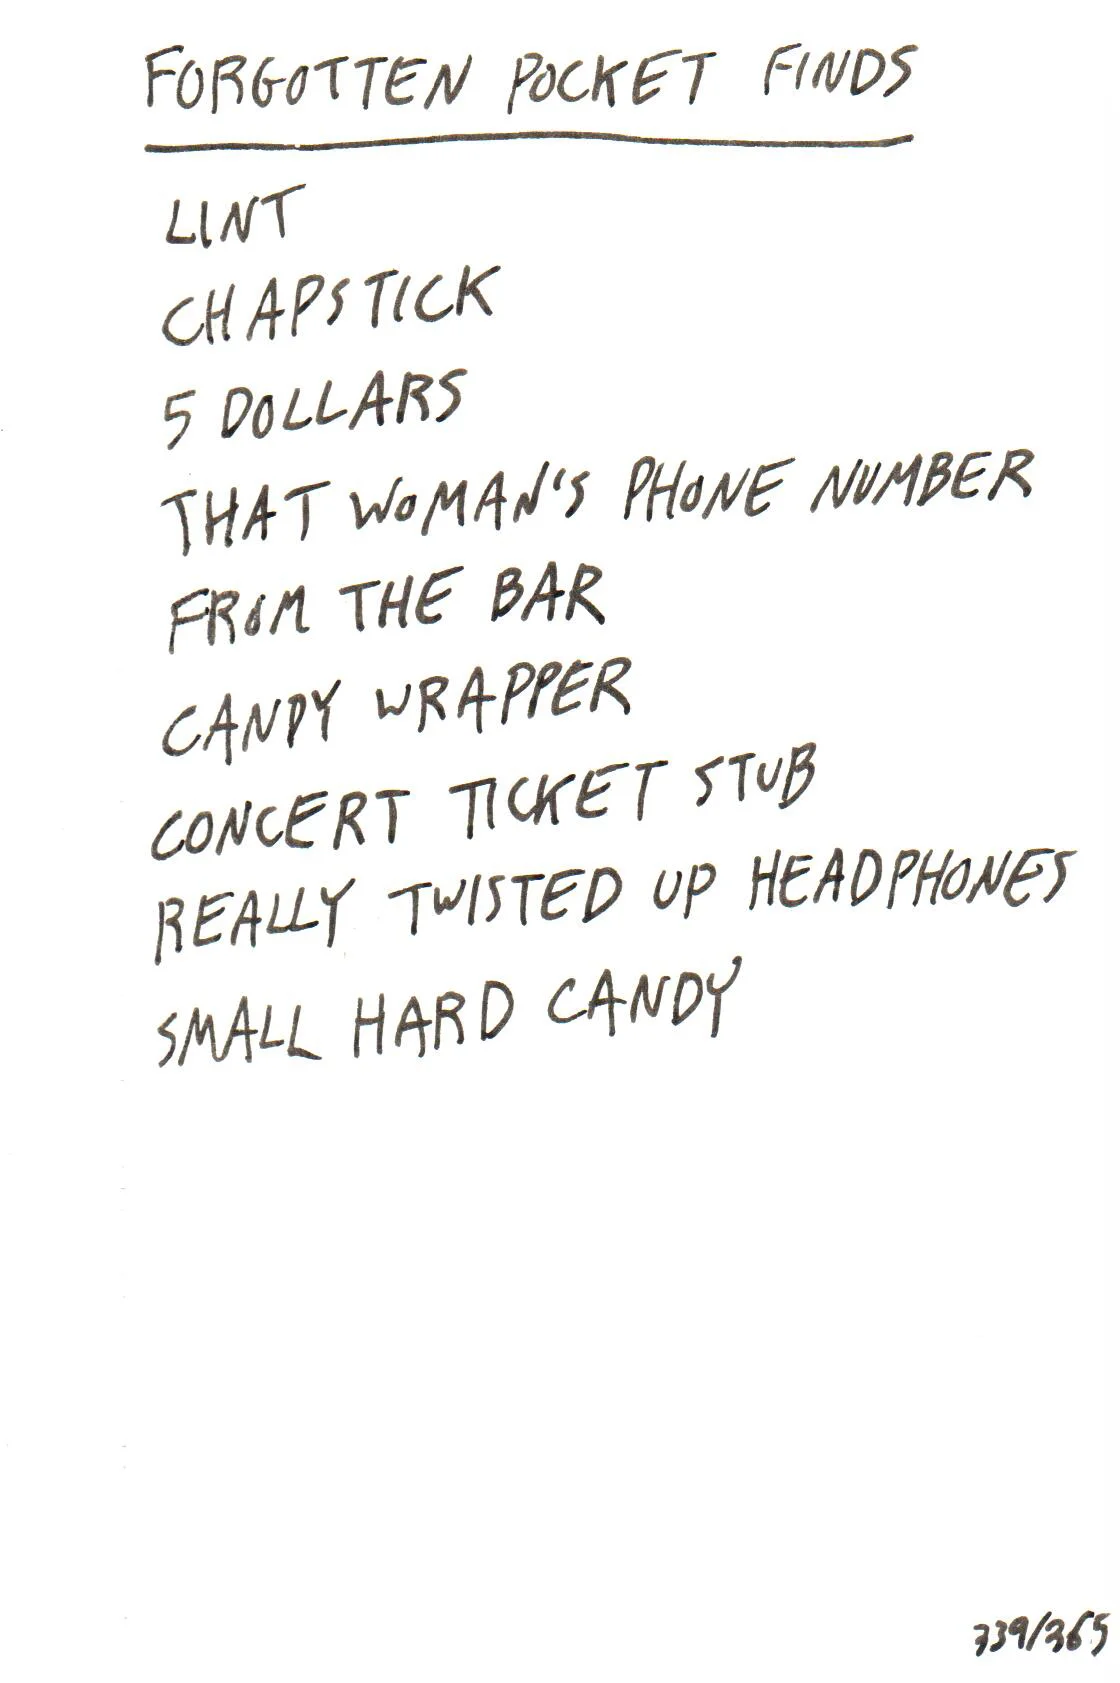 FORGOTTEN POCKET FINDS
LINT
CHAPSTICK
5 DOLLARS
THAT WOMAN'S PHONE NUMBER
FROM THE BAR
CANDY WRAPPER
CONCERT TICKET STUB
REALLY TWISTED UP HEADPHONES
SMALL HARD CANDY
339/365